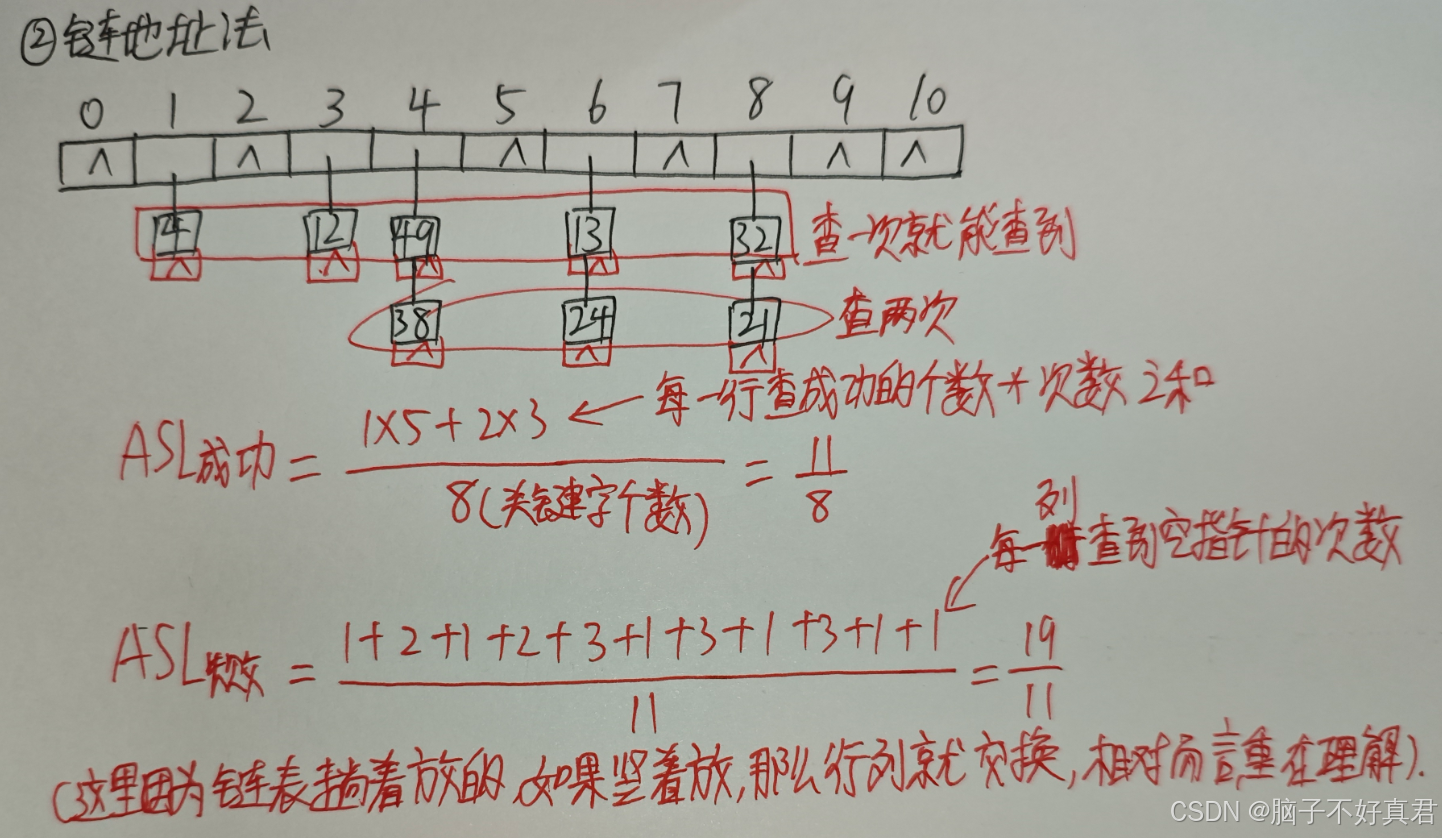 ②链地址法
0 1 2 3 4 5 6 7 8 9 10
∧ ∧ ∧ ∧ ∧ ∧
4 12 49 13 32 查一次就能查到
∧ ∧ ∧ ∧ ∧
38 24 21 查两次
∧ ∧ ∧
1×5+2×3 ← 每一行查成功的个数*次数之和
ASL成功 = = 11/8
8(关键字个数)
列
每一 查到空指针的次数
1+2+1+2+3+1+3+1+3+1+1
ASL失败 = = 19/11
11
(这里因为链表横着放的,如果竖着放,那么行列就交换,相对而言重在理解).
CSDN @脑子不好真君